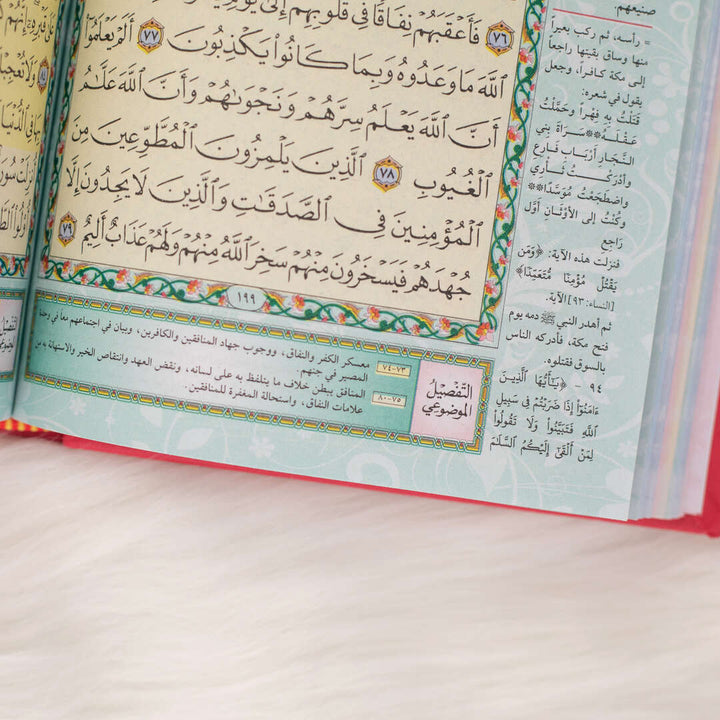 ٧٦ فَأَعْقَبَهُمْ نِفَاقًا فِي قُلُوبِهِمْ إِلَىٰ يَوْمِ
ٱللَّهَ مَا وَعَدُوهُ وَبِمَا كَانُوا۟ يَكْذِبُونَ ٧٧ أَلَمْ يَعْلَمُوٓا۟
أَنَّ ٱللَّهَ يَعْلَمُ سِرَّهُمْ وَنَجْوَىٰهُمْ وَأَنَّ ٱللَّهَ عَلَّٰمُ
ٱلْغُيُوبِ ٧٨ ٱلَّذِينَ يَلْمِزُونَ ٱلْمُطَّوِّعِينَ مِنَ
ٱلْمُؤْمِنِينَ فِي ٱلصَّدَقَٰتِ وَٱلَّذِينَ لَا يَجِدُونَ إِلَّا
جُهْدَهُمْ فَيَسْخَرُونَ مِنْهُمْ سَخِرَ ٱللَّهُ مِنْهُمْ وَلَهُمْ عَذَابٌ أَلِيمٌ ٧٩
١٩٩
صنيعهم.
= رأسه، ثم ركب بعيراً
منها وساق بقيتها راجعاً
إلى مكة كافراً، وجعل
يقول في شعره:
قَتَلْتُ بِهِ فِهْراً وَحَمَّلْتُ
عَقْلَهُ**سَرَاةَ بَنِي
النَّجَّارِ أَرْبَابَ فَارِعِ
وأدْرَكْتُ ثَأْرِي
واضْطَجَعْتُ مُوَسَّدًا**
وكُنْتُ إلى الأوْثَانِ أوَّلَ
رَاجِعِ
فنزلت هذه الآية: ﴿وَمَن
يَقْتُلْ مُؤْمِنًا مُّتَعَمِّدًا﴾
[النساء: ٩٣] الآية.
ثم أهدر النبي ﷺ دمه يوم
فتح مكة، فأدركه الناس
بالسوق فقتلوه.
٩٤ - ﴿يَٰٓأَيُّهَا ٱلَّذِينَ
ءَامَنُوٓا۟ إِذَا ضَرَبْتُمْ فِى سَبِيلِ
ٱللَّهِ فَتَبَيَّنُوا۟ وَلَا تَقُولُوا۟
لِمَنْ أَلْقَىٰٓ إِلَيْكُمُ ٱلسَّلَٰمَ
التَّفْصِيلُ
الموضوعي
٧٣-٧٤ معسكر الكفر والنفاق، ووجوب جهاد المنافقين والكافرين، وبيان في اجتماعهم معاً في وحدة
المصير في جهنم.
٧٥-٨٠ المنافق يبطن خلاف ما يتلفظ به على لسانه، ونقض العهد وانتقاص الخير والاستهانة به من
علامات النفاق، واستحالة المغفرة للمنافقين.